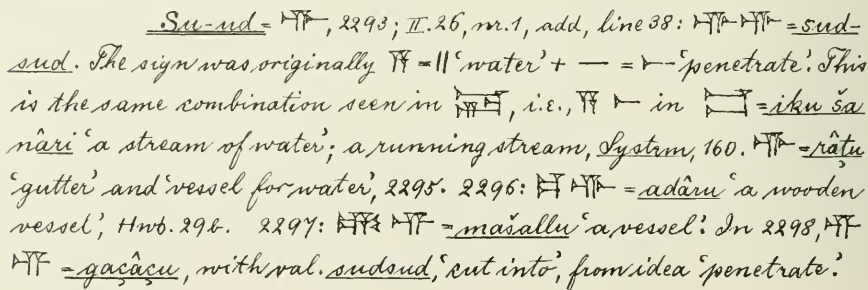 Su-ud = , 2293; II. 26, nr. 1, add, line 38: = sud-
sud. The sign was originally = || 'water' + — = 'penetrate'. This
is the same combination seen in , i.e., in = iku ša
nâri 'a stream of water'; a running stream, System, 160. = râṭu
'gutter' and 'vessel for water', 2295. 2296: = adâru 'a wooden
vessel', Hwb. 29b. 2297: = mašallu 'a vessel'. In 2298,
= gaçâçu, with val. sudsud, 'cut into', from idea 'penetrate'.